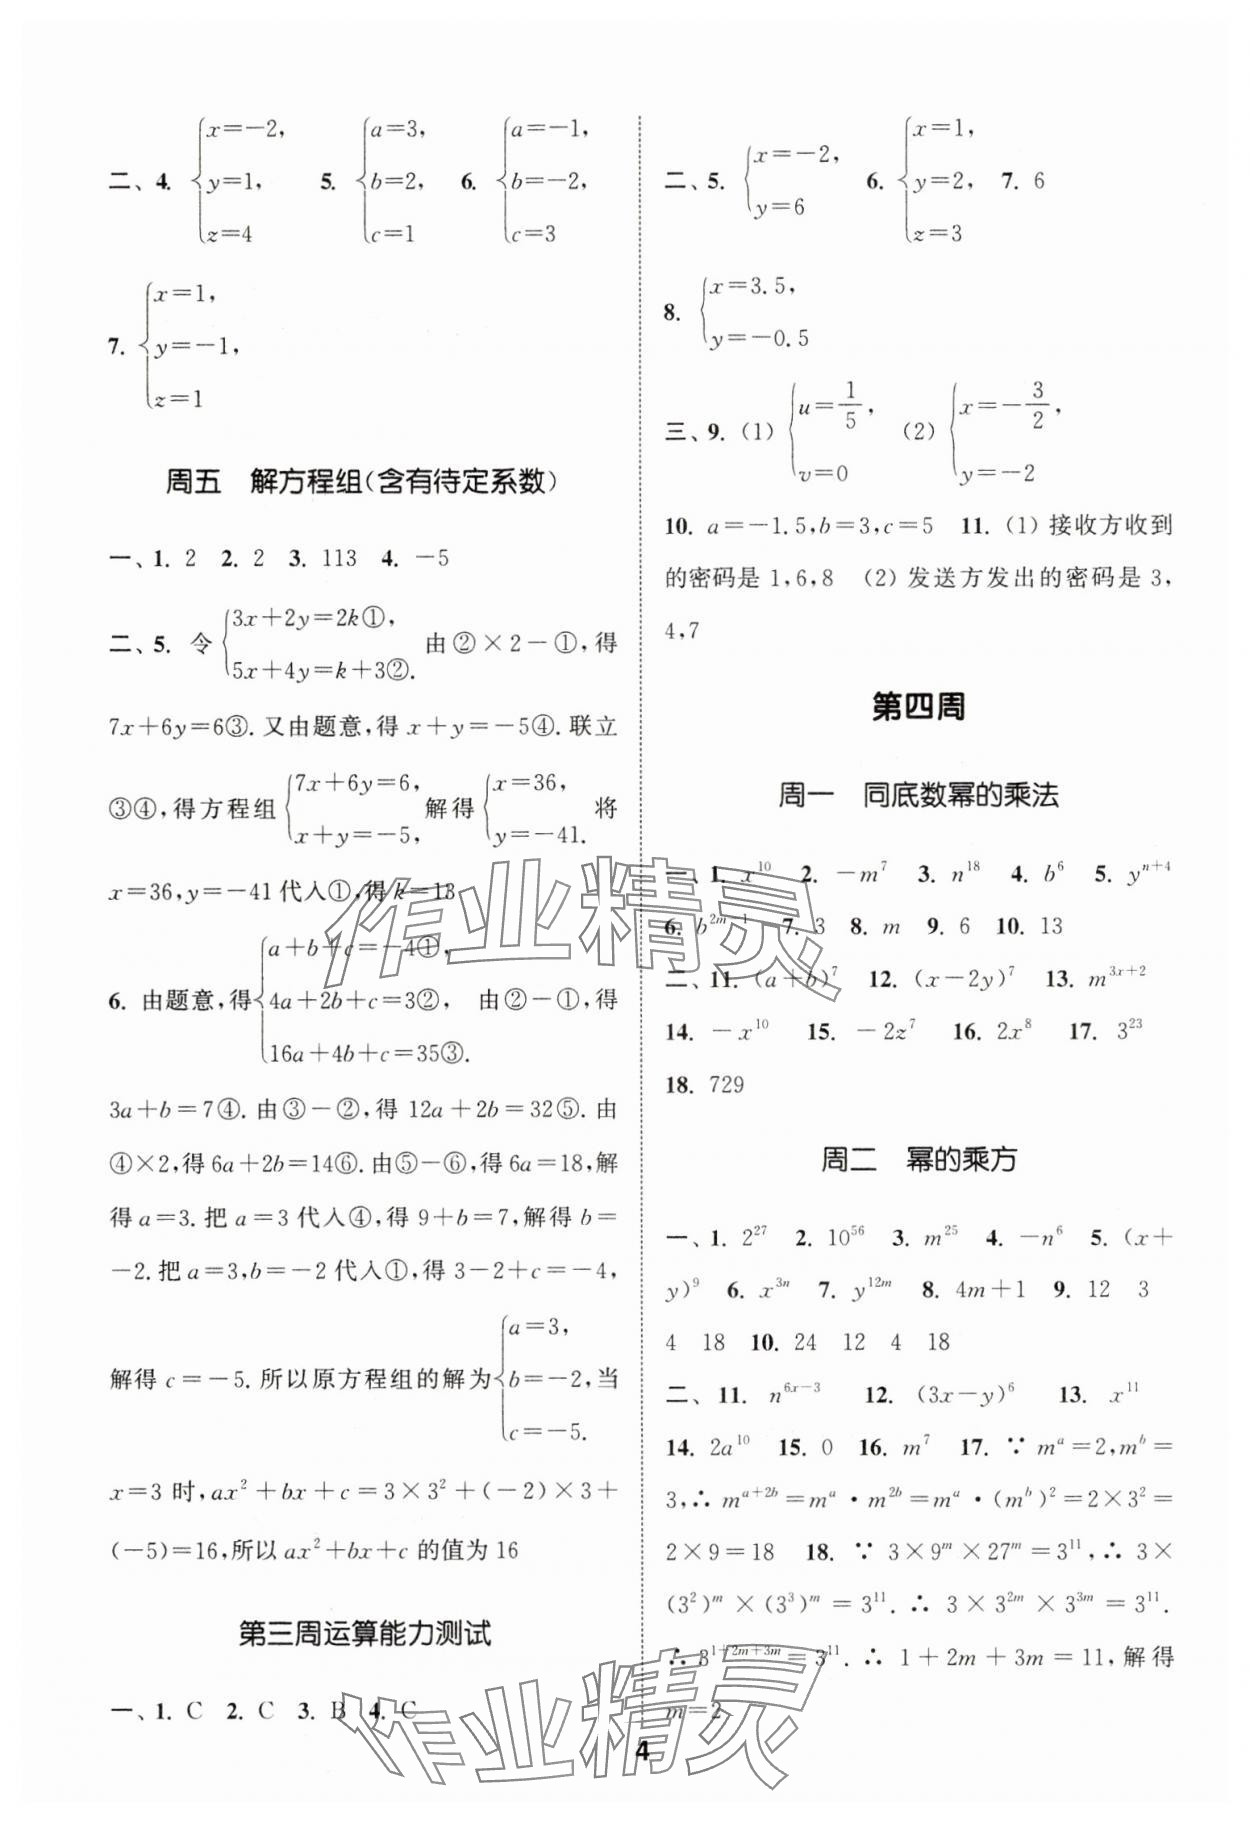 二、4. {x=-2, y=1, z=4 5. {a=3, b=2, c=1 6. {a=-1, b=-2, c=3
7. {x=1, y=-1, z=1
周五 解方程组(含有待定系数)
一、1. 2 2. 2 3. 113 4. -5
二、5. 令{3x+2y=2k①, 5x+4y=k+3②. 由②×2-①,得
7x+6y=6③. 又由题意,得 x+y=-5④. 联立
③④,得方程组{7x+6y=6, x+y=-5, 解得{x=36, y=-41. 将
x=36,y=-41代入①,得 k=13
6. 由题意,得{a+b+c=-4①, 4a+2b+c=3②, 16a+4b+c=35③. 由②-①,得
3a+b=7④. 由③-②,得 12a+2b=32⑤. 由
④×2,得 6a+2b=14⑥. 由⑤-⑥,得 6a=18,解
得 a=3. 把 a=3 代入④,得 9+b=7,解得 b=
-2. 把 a=3,b=-2 代入①,得 3-2+c=-4,
解得 c=-5. 所以原方程组的解为{a=3, b=-2, c=-5. 当
x=3 时,ax²+bx+c=3×3²+(-2)×3+
(-5)=16,所以 ax²+bx+c 的值为 16
第三周运算能力测试
一、1. C 2. C 3. B 4. C
二、5. {x=-2, y=6 6. {x=1, y=2, z=3 7. 6
8. {x=3.5, y=-0.5
三、9. (1) {u=1/5, v=0 (2) {x=-3/2, y=-2
10. a=-1.5,b=3,c=5 11. (1) 接收方收到
的密码是 1,6,8 (2) 发送方发出的密码是 3,
4,7
第四周
周一 同底数幂的乘法
一、1. x¹⁰ 2. -m⁷ 3. n¹⁸ 4. b⁶ 5. yⁿ⁺⁴
6. b^{2m-1} 7. 3 8. m 9. 6 10. 13
二、11. (a+b)⁷ 12. (x-2y)⁷ 13. m^{3x+2}
14. -x¹⁰ 15. -2z⁷ 16. 2x⁸ 17. 3²³
18. 729
周二 幂的乘方
一、1. 2²⁷ 2. 10⁵⁶ 3. m²⁵ 4. -n⁶ 5. (x+
y)⁹ 6. x^{3n} 7. y^{12m} 8. 4m+1 9. 12 3
4 18 10. 24 12 4 18
二、11. n^{6x-3} 12. (3x-y)⁶ 13. x¹¹
14. 2a¹⁰ 15. 0 16. m⁷ 17. ∵ m^a=2,m^b=
3,∴ m^{a+2b}=m^a·m^{2b}=m^a·(m^b)²=2×3²=
2×9=18 18. ∵ 3×9^m×27^m=3¹¹,∴ 3×
(3²)^m×(3³)^m=3¹¹. ∴ 3×3^{2m}×3^{3m}=3¹¹.
∴ 3^{1+2m+3m}=3¹¹. ∴ 1+2m+3m=11,解得
m=2
4
作业精灵
作业精灵